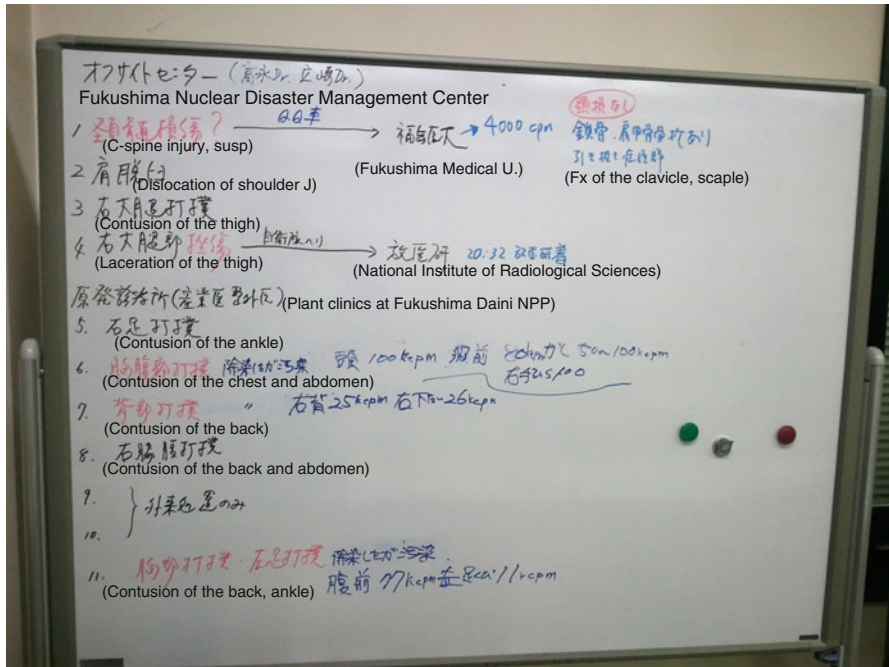 オフサイトセンター (富永Dr. 立崎Dr.)
Fukushima Nuclear Disaster Management Center
1 頚椎損傷? 救急車 → 福島医大 → 4000 cpm 頚損なし
鎖骨、肩甲骨骨折あり
(C-spine injury, susp) (Fukushima Medical U.) (Fx of the clavicle, scaple)
2 肩脱臼
(Dislocation of shoulder J)
3 右大腿打撲
(Contusion of the thigh)
4 右大腿部挫傷 自衛隊ヘリ → 放医研 20:32 放医研着
(Laceration of the thigh) (National Institute of Radiological Sciences)
原発診療所(産業医 外医) (Plant clinics at Fukushima Daini NPP)
5. 右足打撲
(Contusion of the ankle)
6. 胸腹部打撲 除染したが汚染 頭 100kcpm 胸前 50~100kcpm
(Contusion of the chest and abdomen)
7. 背部打撲 〃 右背25kcpm 右下 26kcpm
(Contusion of the back)
8. 右脇腹打撲
(Contusion of the back and abdomen)
9.
10. } 外来処置のみ
11. 胸部打撲・左足打撲 除染したが汚染.
(Contusion of the back, ankle) 腹前 77kcpm 11kcpm